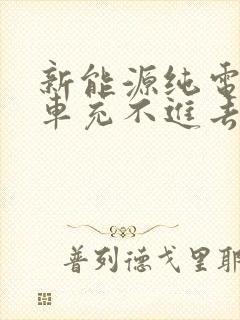 新能源纯電
車充不進去
普列德戈里耶